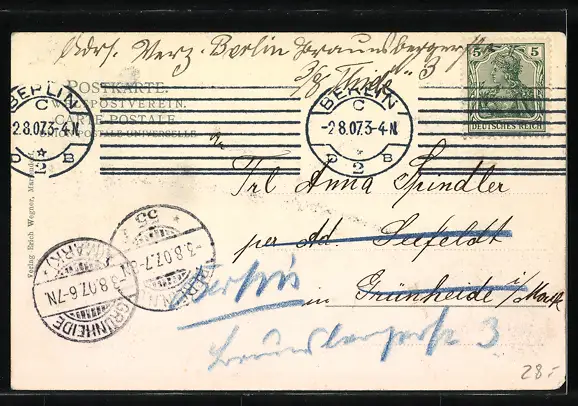 Adrs. Verz. Berlin Braunsbergerstr.
3/8 Thiele 3
POSTKARTE.
WELTPOSTVEREIN.
CARTE POSTALE.
UNION POSTALE UNIVERSELLE
5 5
DEUTSCHES REICH
BERLIN
C
-2.8.07.3-4N
* 2
BERLIN
C
-2.8.07.3-4N
* 2
An
Frl Anna Spindler
per Ad. Seefeldt
in Grünheide i/Mark
Berlin
Braunsbergerstr 3
BERLIN
-3.8.07.7-8N
55
GRÜNHEIDE
3.8.07.6-7N.
(MARK)
Verlag Erich Wegner,
28.-